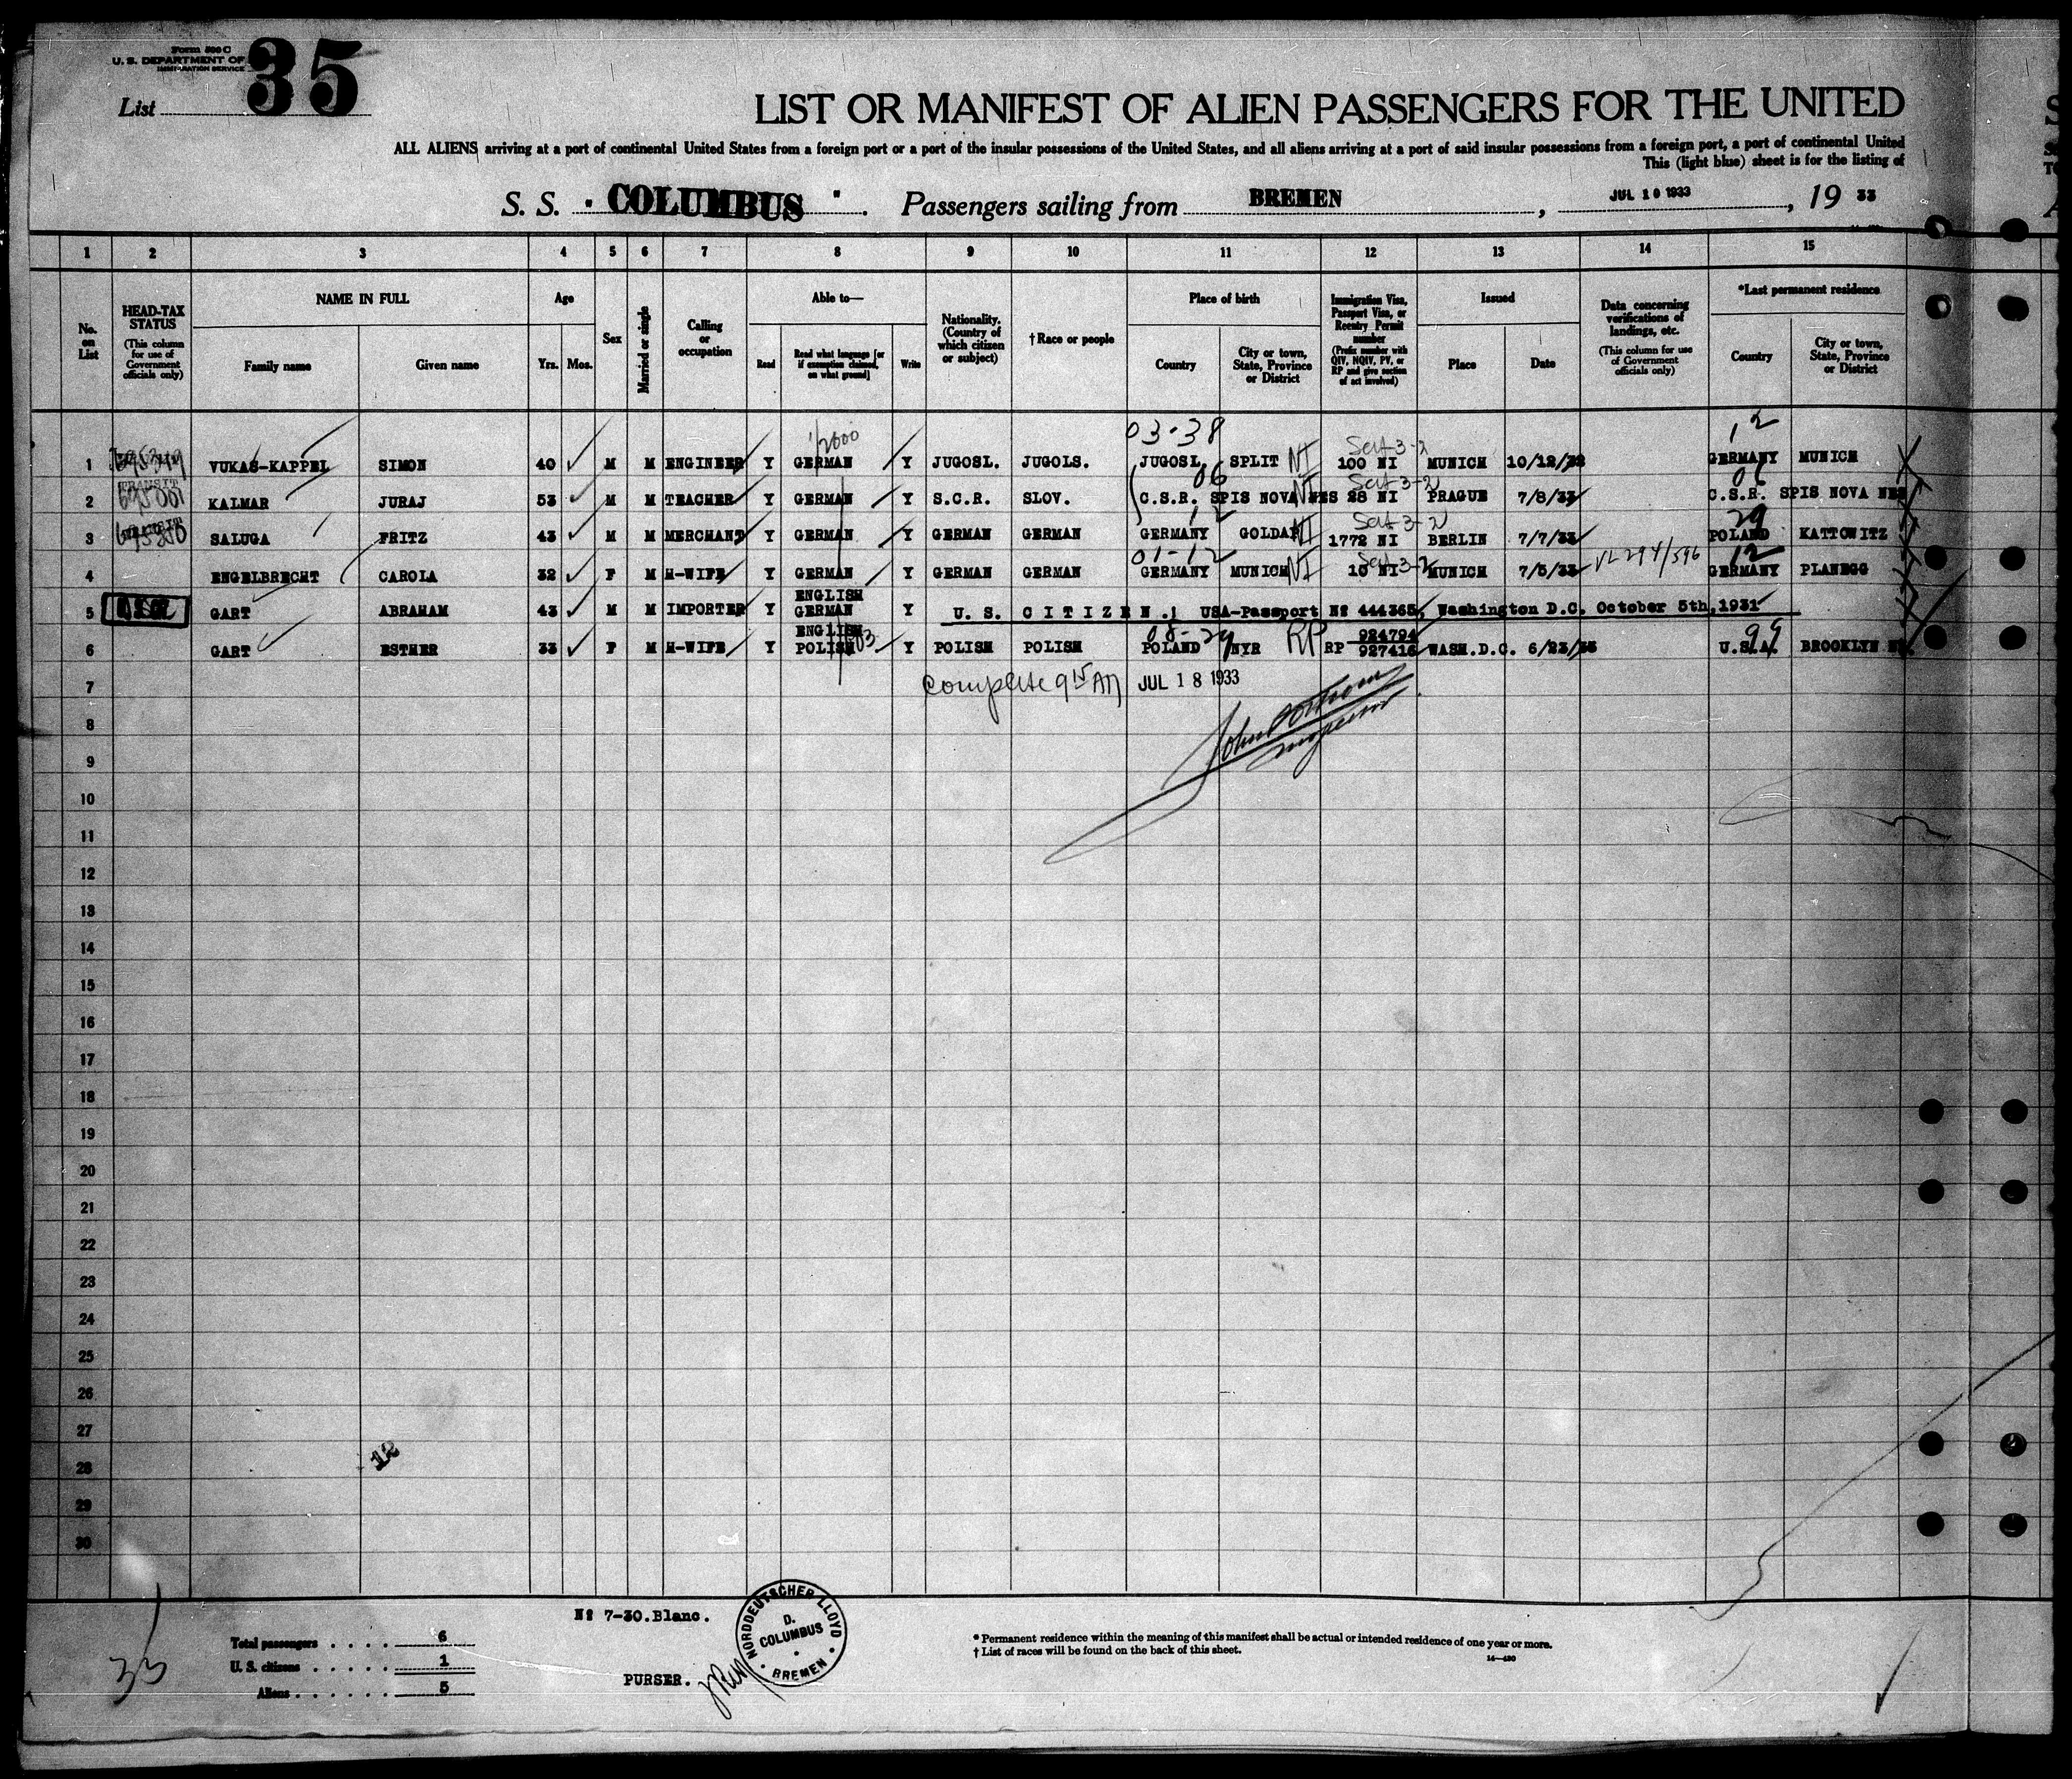 Form 500 C
U. S. DEPARTMENT OF
IMMIGRATION SERVICE
List 35
LIST OR MANIFEST OF ALIEN PASSENGERS FOR THE UNITED
ALL ALIENS arriving at a port of continental United States from a foreign port or a port of the insular possessions of the United States, and all aliens arriving at a port of said insular possessions from a foreign port, a port of continental United
This (light blue) sheet is for the listing of
S. S. "COLUMBUS". Passengers sailing from BREMEN, JUL 10 1933, 19 33
1 2 3 4 5 6 7 8 9 10 11 12 13 14 15
No. on List
HEAD-TAX STATUS (This column for use of Government officials only)
NAME IN FULL
Family name Given name
Age
Yrs. Mos.
Sex
Married or single
Calling or occupation
Able to—
Read
Read what language [or if exemption claimed, on what ground]
Write
Nationality. (Country of which citizen or subject)
†Race or people
Place of birth
Country
City or town, State, Province or District
Immigration Visa, Passport Visa, or Reentry Permit number (Prefix number with QIV, NQIV, PV, or RP and give section of act involved)
Issued
Place Date
Data concerning verifications of landings, etc. (This column for use of Government officials only)
*Last permanent residence
Country
City or town, State, Province or District
03-38 12
1 VUKAS-KAPPEL SIMON 40 M M ENGINEER Y GERMAN Y JUGOSL. JUGOLS. JUGOSL. SPLIT NI 100 NI MUNICH 10/12/32 GERMANY MUNICH
06 Sect 3-2 06
2 KALMAR JURAJ 53 M M TEACHER Y GERMAN Y S.C.R. SLOV. C.S.R. SPIS NOVA NES 28 NI PRAGUE 7/8/33 C.S.R. SPIS NOVA NES
12 Sect 3-2 29
3 SALUGA FRITZ 43 M M MERCHANT Y GERMAN Y GERMAN GERMAN GERMANY GOLDAP NI 1772 NI BERLIN 7/7/33 POLAND KATTOWITZ
01-12 Sect 3-2 12
4 ENGELBRECHT CAROLA 32 F M H-WIFE Y GERMAN Y GERMAN GERMAN GERMANY MUNICH NI 10 NI MUNICH 7/5/33 VL 294/596 GERMANY PLANEGG
5 GART ABRAHAM 43 M M IMPORTER Y ENGLISH GERMAN Y U. S. CITIZEN.! USA-Passport Nº 444365, Washington D.C. October 5th,1931
08-29 99
6 GART ESTHER 33 F M H-WIFE Y ENGLISH POLISH Y POLISH POLISH POLAND NYR RP RP 924794 927416 WASH.D.C. 6/23/33 U.S.A. BROOKLYN
7 Complete 9 15 AM JUL 18 1933
8
9
10
11
12
13
14
15
16
17
18
19
20
21
22
23
24
25
26
27
28
29
30
12
Nº 7-30.Blanc.
Total passengers . . . . 6
U. S. citizens . . . . . 1
Aliens . . . . . . 5
33
PURSER.
NORDDEUTSCHER LLOYD
D. COLUMBUS
BREMEN
* Permanent residence within the meaning of this manifest shall be actual or intended residence of one year or more.
† List of races will be found on the back of this sheet.
14—430